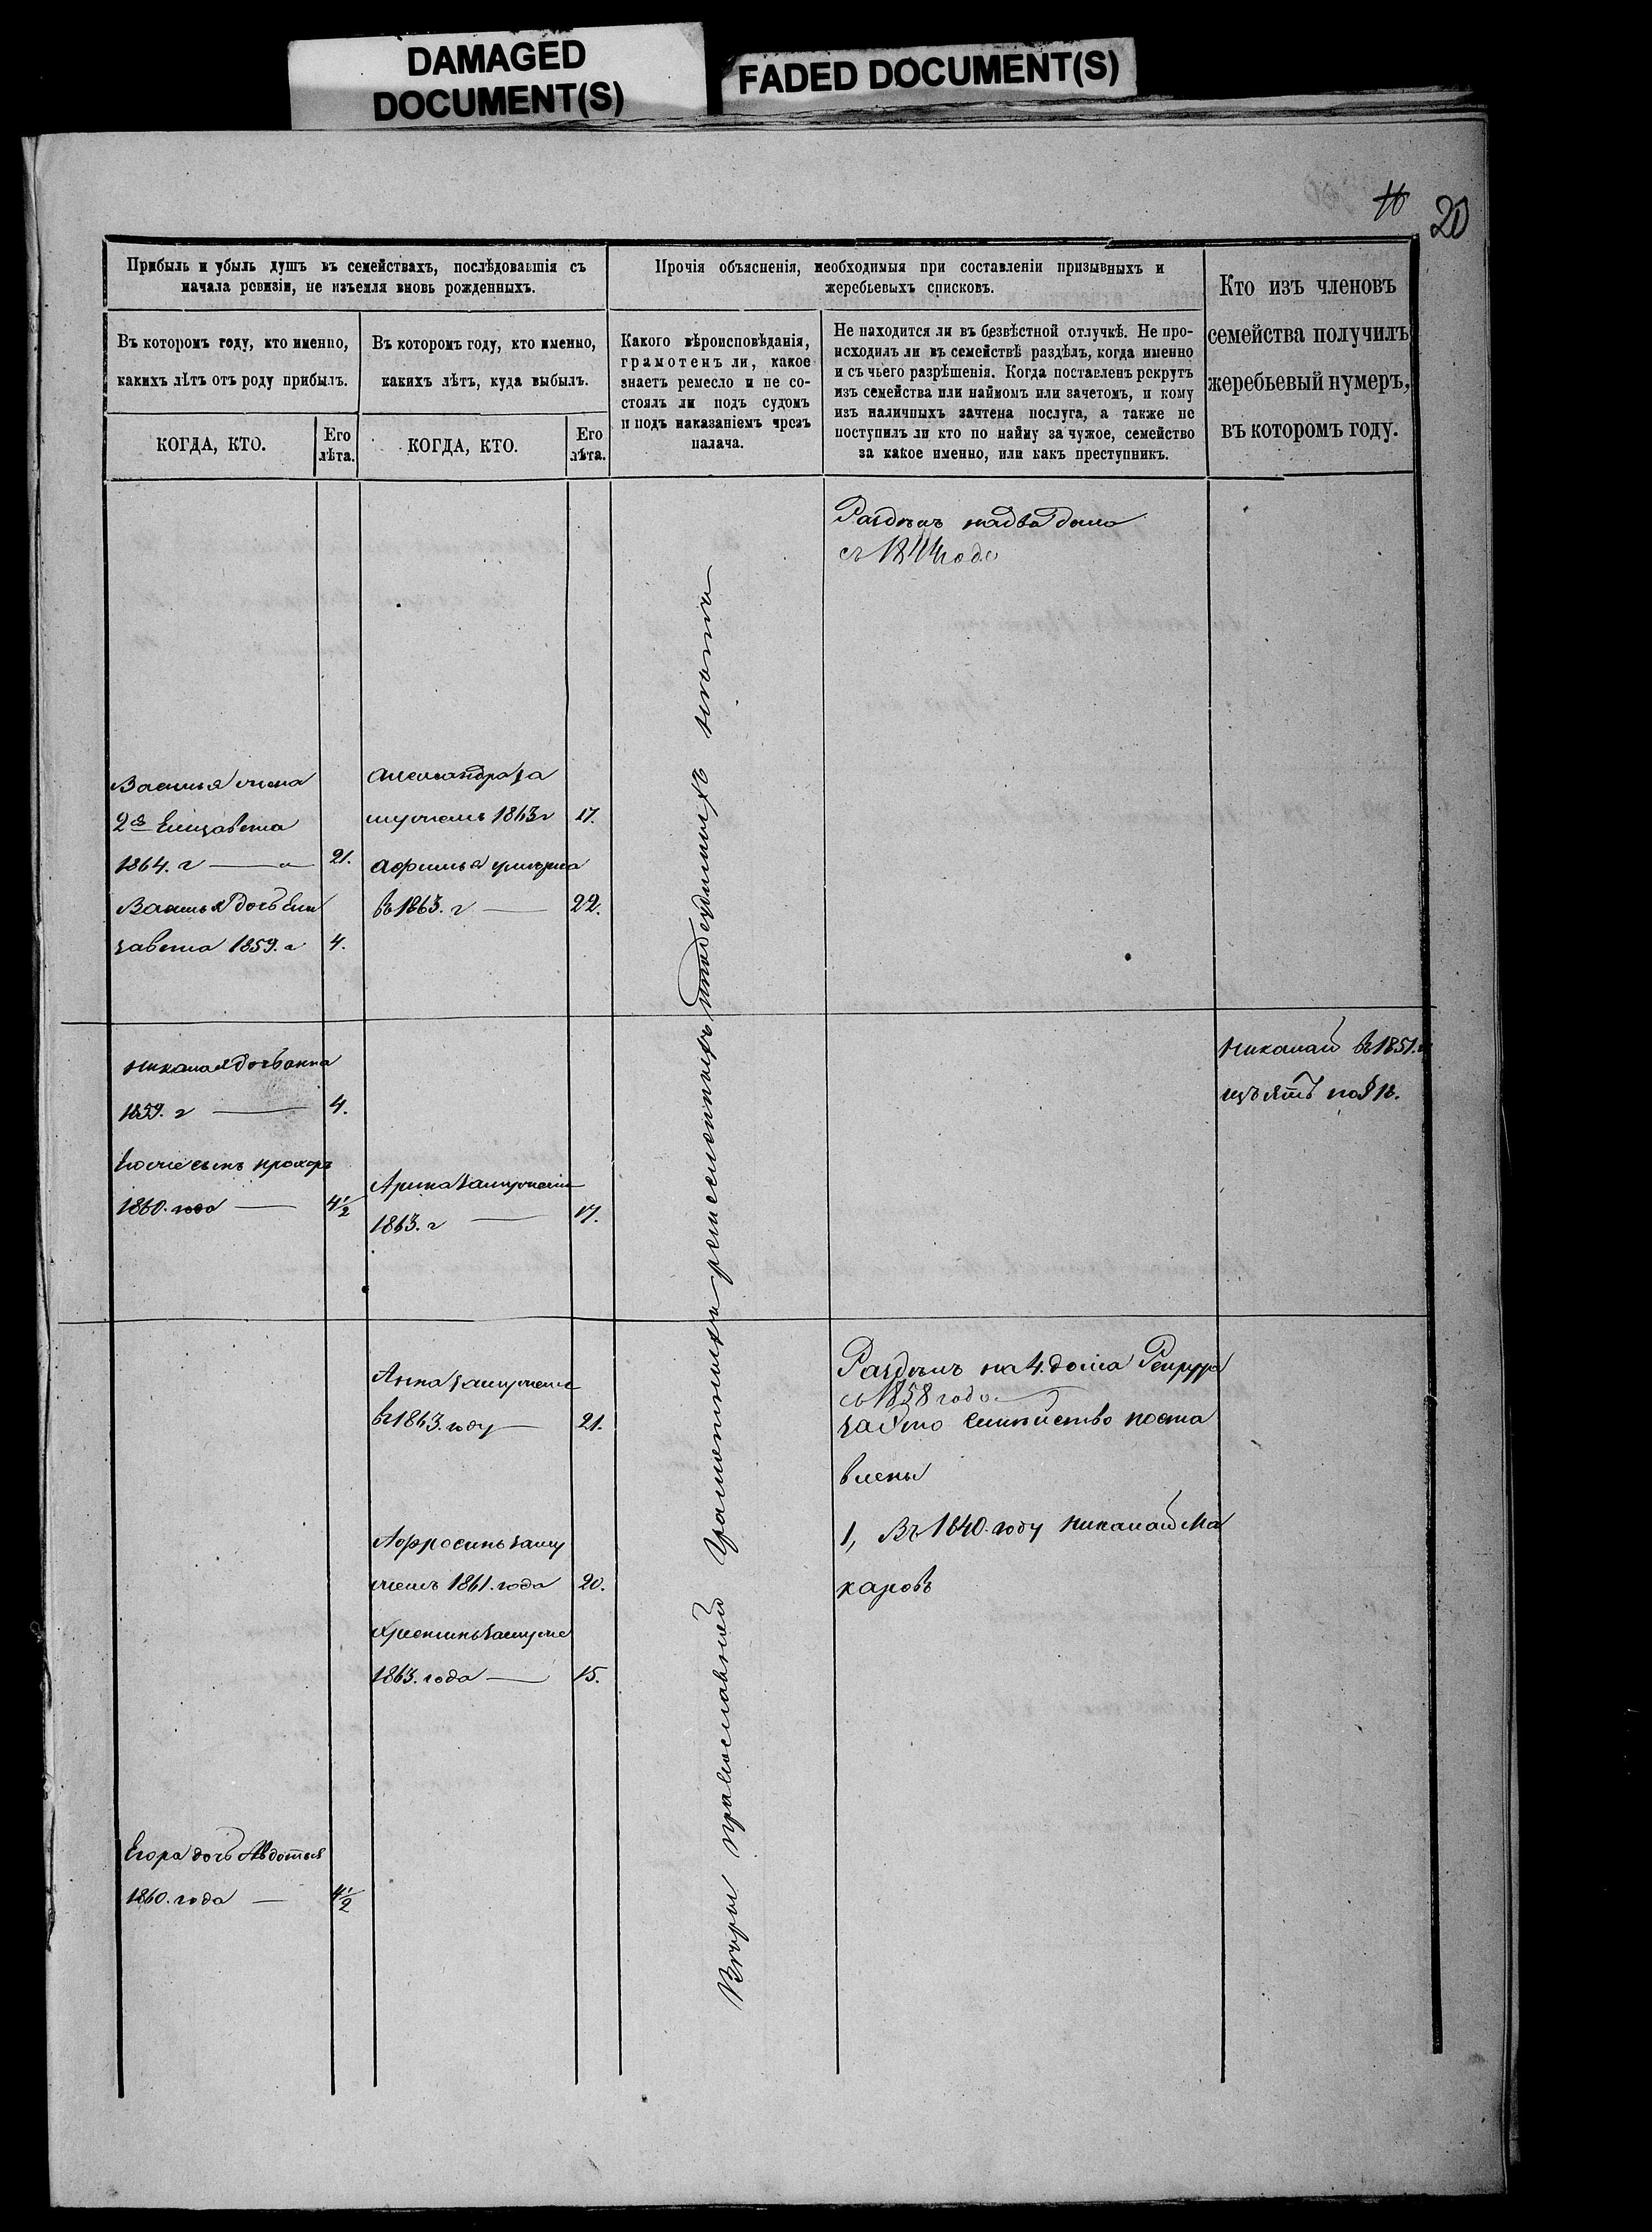 DAMAGED
DOCUMENT(S)
FADED DOCUMENT(S)
16
20
Прибыль и убыль душъ въ семействахъ, послѣдовавшія съ
начала ревизіи, не изъемля вновь рожденныхъ.
Въ которомъ году, кто именно,
какихъ лѣтъ отъ роду прибылъ.
КОГДА, КТО.
Его
лѣта.
Въ которомъ году, кто именно,
какихъ лѣтъ, куда выбылъ.
КОГДА, КТО.
Его
лѣта.
Прочія объясненія, необходимыя при составленіи призывныхъ и
жеребьевыхъ списковъ.
Какого вѣроисповѣданія,
грамотенъ ли, какое
знаетъ ремесло и не со-
стоялъ ли подъ судомъ
и подъ наказаніемъ чрезъ
палача.
Не находится ли въ безвѣстной отлучкѣ. Не про-
исходилъ ли въ семействѣ раздѣлъ, когда именно
и съ чьего разрѣшенія. Когда поставленъ рекрутъ
изъ семейства или наймомъ или зачетомъ, и кому
изъ наличныхъ зачтена послуга, а также не
поступилъ ли кто по найму за чужое, семейство
за какое именно, или какъ преступникъ.
Кто изъ членовъ
семейства получилъ
жеребьевый нумеръ,
въ которомъ году.
Раздѣлъ на два дома
съ 1844 года
Василья жена
2я Елизавета
1864. г 21.
Василья дочь Ели
завета 1859. г 4.
Александра за
мужемъ 1863 г 17.
Афимья умерла
въ 1863. г 22.
Николая дочь Анна
1859. г 4.
сынъ Прохоръ
1860. года 4 1/2
Арина замужемъ
1863. г 17.
Николай въ 1851. г
изъятъ по 18.
Анна замужемъ
въ 1863. году 21.
Афросинья заму
жемъ 1861. года 20.
замуже
1863. года 15.
Егора дочь Авдотья
1860. года 4 1/2
Раздѣлъ на 4. дома
съ 1858 года
за это семейство поста
влены
1, Въ 1840. году Николай Ма
каровъ
Вѣры православной Грамотныхъ ремесленныхъ подсудимыхъ